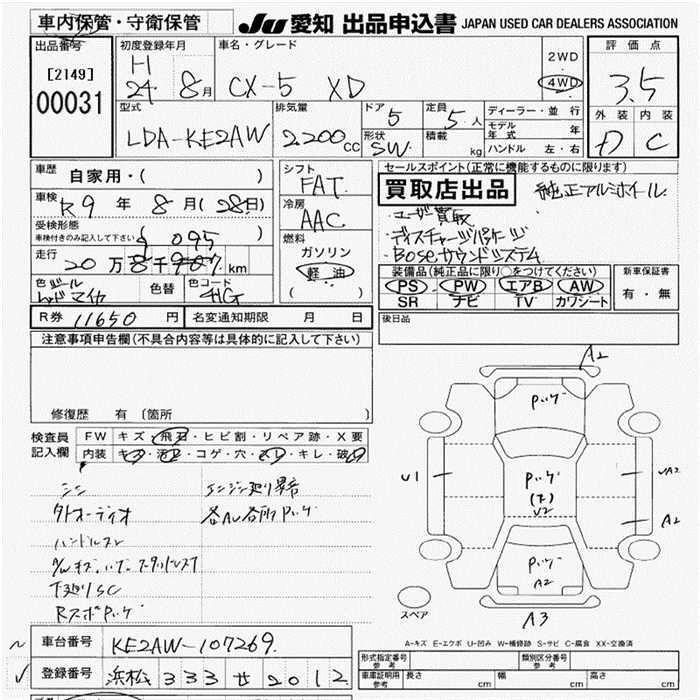 車内保管・守衛保管
JU 愛知 出品申込書 JAPAN USED CAR DEALERS ASSOCIATION
出品番号
[2149]
00031
初度登録年月
H
24 8月
車名・グレード
CX-5 XD
2WD
4WD
評価点
3.5
外装 内装
D C
型式
LDA-KE2AW
排気量
2200cc
ドア 5
形状 SW
定員 5人
積載 kg
ディーラー・並行
モデル年式 年
ハンドル 左・右
車歴 自家用・( )
車検 R9年 8月(28日)
受検形態
車検付きのみ記入して下さい
095
走行 20万8千987km
色 マイカ
色替
色コード 41G
シフト
FAT
冷房
AAC
燃料
ガソリン
軽油
( )
セールスポイント(正常に機能するものに限ります)
買取店出品 純正アルミホイール
・ユーザ買取
・ディスチャージパッケージ
・Boseサウンドシステム
装備品(純正品に限り○をつけてください)
PS PW エアB AW
SR ナビ TV カワシート
新車保証書
有・無
R券 11650円
名変通知期限 月 日
後日品
注意事項申告欄(不具合内容等は具体的に記入して下さい)
修復歴 有 〔箇所 〕
検査員記入欄
FW キズ・飛石・ヒビ割・リペア跡・X要
内装 キズ・汚れ・コゲ・穴・スレ・キレ・破れ
エンジン廻り異音
外オーディオ
各AL各所Pハゲ
ハンドルスレ
下廻りSC
RスポPハゲ
A2
Pハゲ
U1
Pハゲ
U2
A2
Pハゲ
A2
スペア
A3
A-キズ E-エクボ U-凹み W-補修跡 S-サビ C-腐食 XX-交換済
車台番号 KE2AW-107269
登録番号 浜松 333 せ 2012
形式指定番号 参考
類別区分番号 参考
車庫証明用 参考 長さ cm 幅 cm 高さ cm